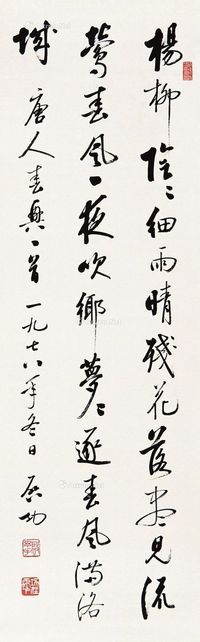 楊柳陰々細雨晴殘花落盡見流
鶯春風一夜吹鄉夢々逐春風滿洛
城
唐人春興一首一九七八年冬日啟功